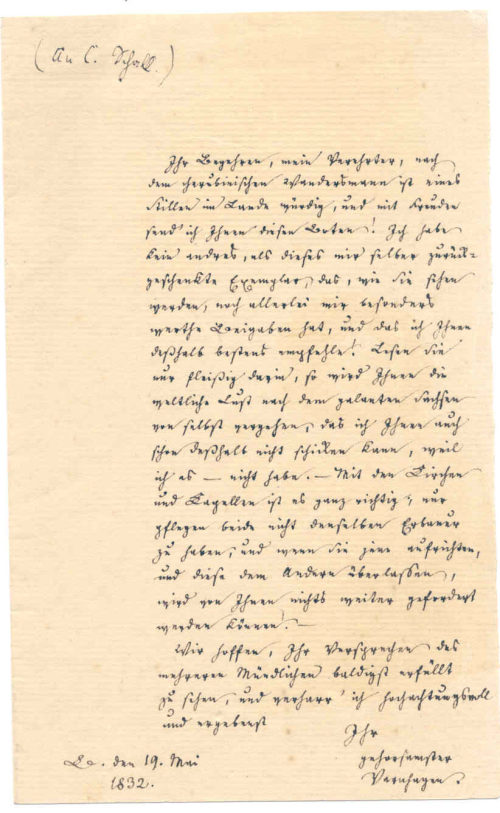 (An C. Schall.)
Ihr Begehren, mein Verehrter, nach
dem cherubinischen Wandersmann ist eines
Stillen im Lande würdig, und mit Freuden
send' ich Ihnen diesen Boten! Ich habe
kein andres, als dieses mir selber zurück-
geschenkte Exemplar, das, wie Sie sehen
werden, noch allerlei mir besonders
werthe Beigaben hat, und das ich Ihnen
deßhalb bestens empfehle! Lesen Sie
nur fleißig darin, so wird Ihnen die
weltliche Lust nach dem galanten Sachsen
von selbst vergehen, das ich Ihnen auch
schon deßhalb nicht schicken kann, weil
ich es — nicht habe. — Mit den Kirchen
und Kapellen ist es ganz richtig; nur
pflegen beide nicht denselben Erbauer
zu haben; und wenn Sie jene aufrichten,
und diese dem Andern überlassen,
wird von Ihnen nichts weiter gefordert
werden können! —
Wir hoffen, Ihr Versprechen des
mehreren Mündlichen baldigst erfüllt
zu sehen, und verharr' ich hochachtungsvoll
und ergebenst
Ihr
gehorsamster
Varnhagen.
B. den 19. Mai
1832.